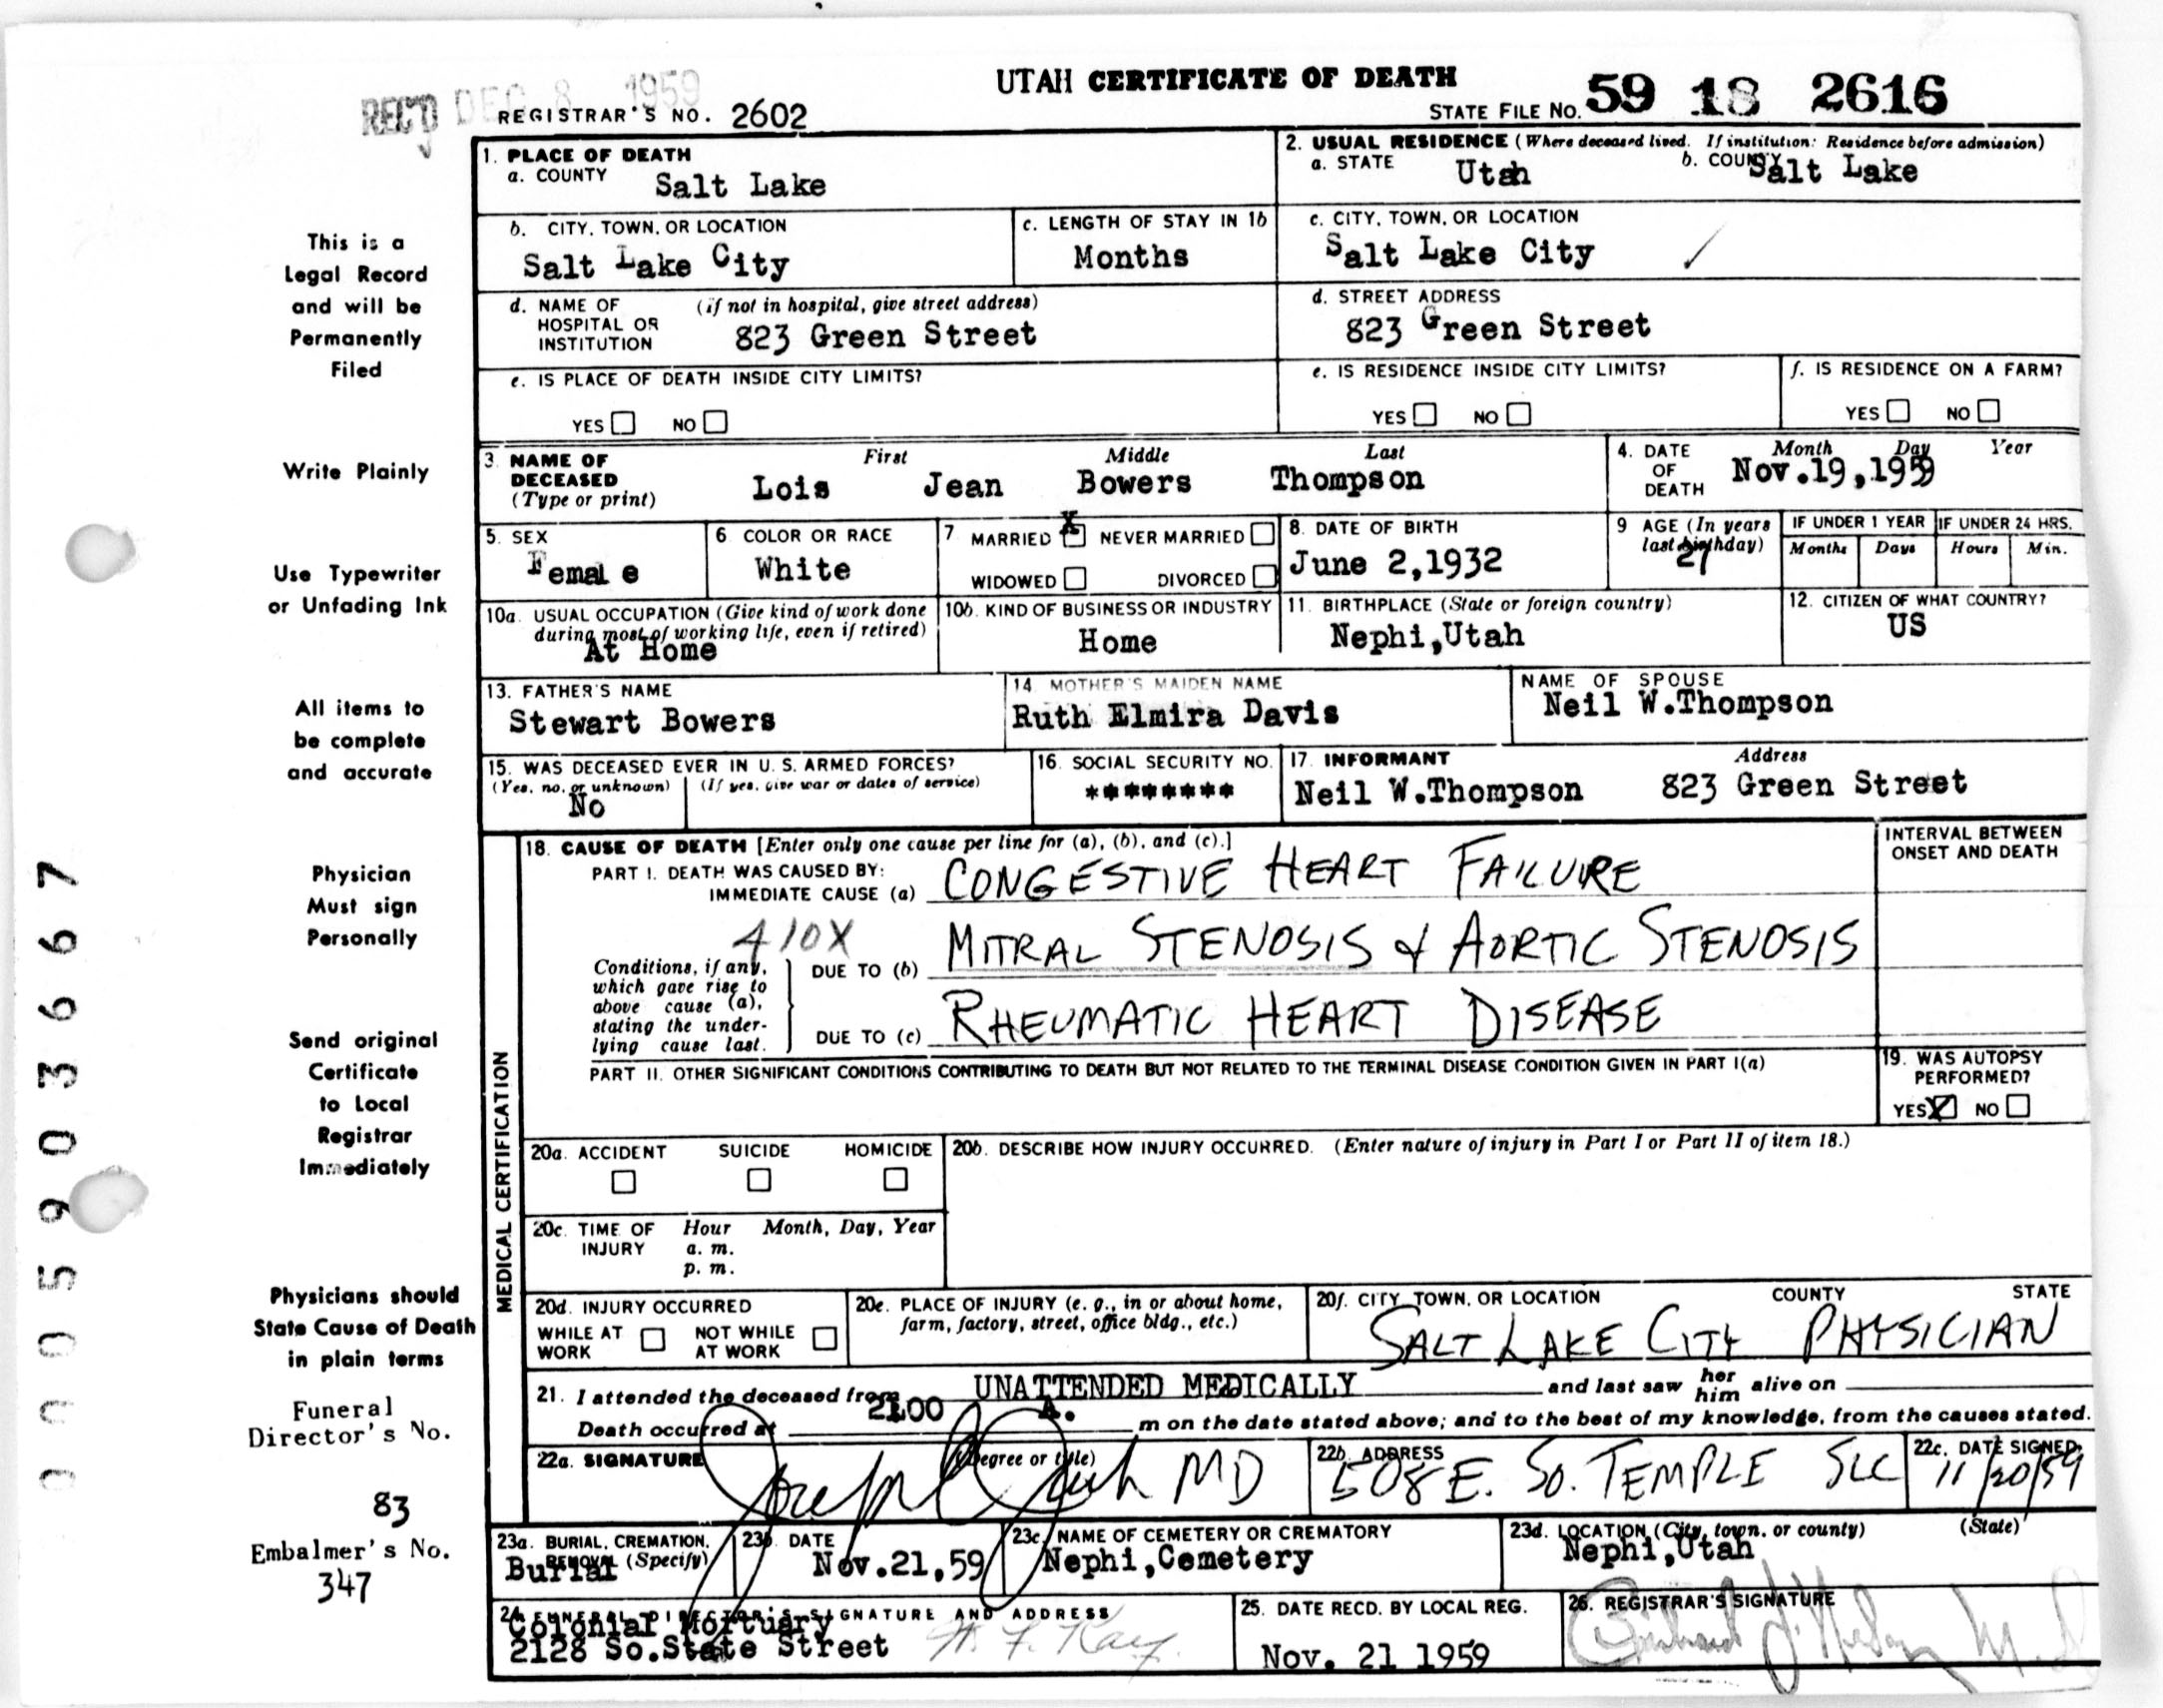 UTAH CERTIFICATE OF DEATH
REC'D DEC 8 1959
REGISTRAR'S NO. 2602
STATE FILE NO. 59 18 2616
1. PLACE OF DEATH
a. COUNTY Salt Lake
2. USUAL RESIDENCE (Where deceased lived. If institution: Residence before admission)
a. STATE Utah b. COUNTY Salt Lake
b. CITY, TOWN, OR LOCATION
Salt Lake City
c. LENGTH OF STAY IN 1b
Months
c. CITY, TOWN, OR LOCATION
Salt Lake City
d. NAME OF HOSPITAL OR INSTITUTION (if not in hospital, give street address)
823 Green Street
d. STREET ADDRESS
823 Green Street
e. IS PLACE OF DEATH INSIDE CITY LIMITS?
YES NO
e. IS RESIDENCE INSIDE CITY LIMITS?
YES NO
f. IS RESIDENCE ON A FARM?
YES NO
3. NAME OF DECEASED (Type or print)
First Middle Last
Lois Jean Bowers Thompson
4. DATE OF DEATH
Month Day Year
Nov.19,1959
5. SEX
Female
6. COLOR OR RACE
White
7. MARRIED X NEVER MARRIED
WIDOWED DIVORCED
8. DATE OF BIRTH
June 2,1932
9 AGE (In years last birthday)
27
IF UNDER 1 YEAR
Months Days
IF UNDER 24 HRS.
Hours Min.
10a. USUAL OCCUPATION (Give kind of work done
during most of working life, even if retired)
At Home
10b. KIND OF BUSINESS OR INDUSTRY
Home
11. BIRTHPLACE (State or foreign country)
Nephi,Utah
12. CITIZEN OF WHAT COUNTRY?
US
13. FATHER'S NAME
Stewart Bowers
14. MOTHER'S MAIDEN NAME
Ruth Elmira Davis
NAME OF SPOUSE
Neil W.Thompson
15. WAS DECEASED EVER IN U. S. ARMED FORCES?
(Yes, no, or unknown) (If yes, give war or dates of service)
No
16. SOCIAL SECURITY NO.
********
17. INFORMANT Address
Neil W.Thompson 823 Green Street
18. CAUSE OF DEATH [Enter only one cause per line for (a), (b), and (c).]
INTERVAL BETWEEN
ONSET AND DEATH
PART I. DEATH WAS CAUSED BY:
IMMEDIATE CAUSE (a) CONGESTIVE HEART FAILURE
410X
Conditions, if any,
which gave rise to
above cause (a),
stating the under-
lying cause last.
DUE TO (b) MITRAL STENOSIS & AORTIC STENOSIS
DUE TO (c) RHEUMATIC HEART DISEASE
PART II. OTHER SIGNIFICANT CONDITIONS CONTRIBUTING TO DEATH BUT NOT RELATED TO THE TERMINAL DISEASE CONDITION GIVEN IN PART I(a)
19. WAS AUTOPSY
PERFORMED?
YES X NO
MEDICAL CERTIFICATION
20a. ACCIDENT SUICIDE HOMICIDE
20b. DESCRIBE HOW INJURY OCCURRED. (Enter nature of injury in Part I or Part II of item 18.)
20c. TIME OF INJURY Hour Month, Day, Year
a. m.
p. m.
20d. INJURY OCCURRED
WHILE AT WORK NOT WHILE AT WORK
20e. PLACE OF INJURY (e. g., in or about home,
farm, factory, street, office bldg., etc.)
20f. CITY, TOWN, OR LOCATION COUNTY STATE
SALT LAKE CITY PHYSICIAN
21. I attended the deceased from UNATTENDED MEDICALLY and last saw her him alive on
Death occurred at 2:00 A. m on the date stated above; and to the best of my knowledge, from the causes stated.
22a. SIGNATURE (Degree or title)
MD
22b. ADDRESS
508 E. SO. TEMPLE SLC
22c. DATE SIGNED
11/20/59
23a. BURIAL, CREMATION,
REMOVAL (Specify)
Burial
23b. DATE
Nov.21,59
23c. NAME OF CEMETERY OR CREMATORY
Nephi,Cemetery
23d. LOCATION (City, town, or county) (State)
Nephi,Utah
24. FUNERAL DIRECTOR'S SIGNATURE AND ADDRESS
Colonial Mortuary
2128 So.State Street
25. DATE RECD. BY LOCAL REG.
Nov. 21 1959
26. REGISTRAR'S SIGNATURE
This is a
Legal Record
and will be
Permanently
Filed
Write Plainly
Use Typewriter
or Unfading Ink
All items to
be complete
and accurate
Physician
Must sign
Personally
Send original
Certificate
to Local
Registrar
Immediately
Physicians should
State Cause of Death
in plain terms
Funeral
Director's No.
83
Embalmer's No.
347
0005903667